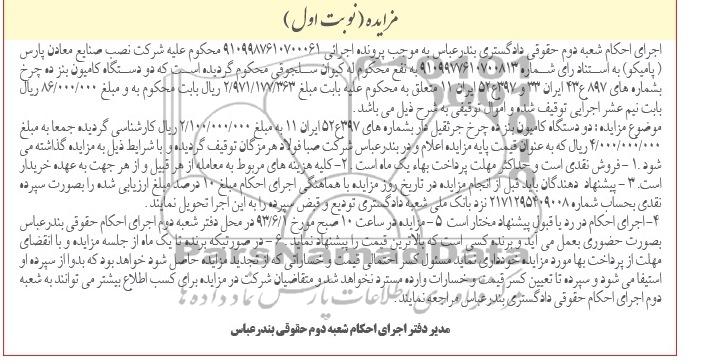 مزایده (نوبت اول)
اجرای احکام شعبه دوم حقوقی دادگستری بندرعباس به موجب پرونده اجرائی ۹۱۰۹۹۸۷۶۱۰۷۰۰۰۶۱ محکوم علیه شرکت نصب صنایع معادن پارس
( پامیکو) به استناد رای شماره ۹۱۰۹۹۷۷۶۱۰۷۰۰۸۱۳ به نفع محکوم له کیوان سلجوقی محکوم گردیده است که دو دستگاه کامیون بنز ده چرخ
بشماره های ۸۹۷ع۴۳ ایران ۳۳ و ۳۹۷ع۵۲ ایران ۱۱ متعلق به محکوم علیه بابت مبلغ ۲/۹۷۱/۱۷۷/۳۶۳ ریال بابت محکوم به و مبلغ ۸۶/۰۰۰/۰۰۰ ریال
بابت نیم عشر اجرایی توقیف شده و اموال توقیفی به شرح ذیل می باشد.
موضوع مزایده : دو دستگاه کامیون بنز ده چرخ جرثقیل دار بشماره های ۳۹۷ع۵۲ ایران ۱۱ به مبلغ ۲/۱۰۰/۰۰۰/۰۰۰ ریال کارشناسی گردیده جمعا به مبلغ
۴/۰۰۰/۰۰۰/۰۰۰ ریال که به عنوان قیمت پایه مزایده اعلام و در بندرعباس شرکت صبا فولاد هرمزگان توقیف گردیده و با شرایط ذیل به مزایده گذاشته می
شود . ۱- فروش نقدی است و حداکثر مهلت پرداخت بهاء یک ماه است . ۲- کلیه هزینه های مربوط به معامله از هر قبیل و از هر جهت به عهده خریدار
است. ۳- پیشنهاد دهندگان باید قبل از انجام مزایده در تاریخ روز مزایده با هماهنگی اجرای احکام مبلغ ۱۰ درصد مبلغ ارزیابی شده را بصورت سپرده
نقدی بحساب شماره ۲۱۷۱۲۹۵۴۰۹۰۰۸ نزد بانک ملی شعبه دادگستری تودیع و قبض سپرده را به این اجرا تحویل نمایند .
۴- اجرای احکام در رد یا قبول پیشنهاد مختار است ۵- مزایده در ساعت ۱۰ صبح مورخ ۹۳/۶/۱ در محل دفتر شعبه دوم اجرای احکام حقوقی بندرعباس
بصورت حضوری بعمل می آید و برنده کسی است که بالاترین قیمت را پیشنهاد نماید . ۶- در صورتیکه برنده تا یک ماه از جلسه مزایده و با انقضای
مهلت از پرداخت بها مورد مزایده خودداری نماید مسئول کسر احتمالی قیمت و خساراتی که از تجدید مزایده حاصل شود خواهد بود که بدوا از سپرده او
استیفا می شود و سپرده تا تعیین کسر قیمت و خسارات وارده مسترد نخواهد شد و متقاضیان شرکت در مزایده برای کسب اطلاع بیشتر می توانند به شعبه
دوم اجرای احکام حقوقی دادگستری بندرعباس مراجعه نمایند .
مدیر دفتر اجرای احکام شعبه دوم حقوقی بندرعباس